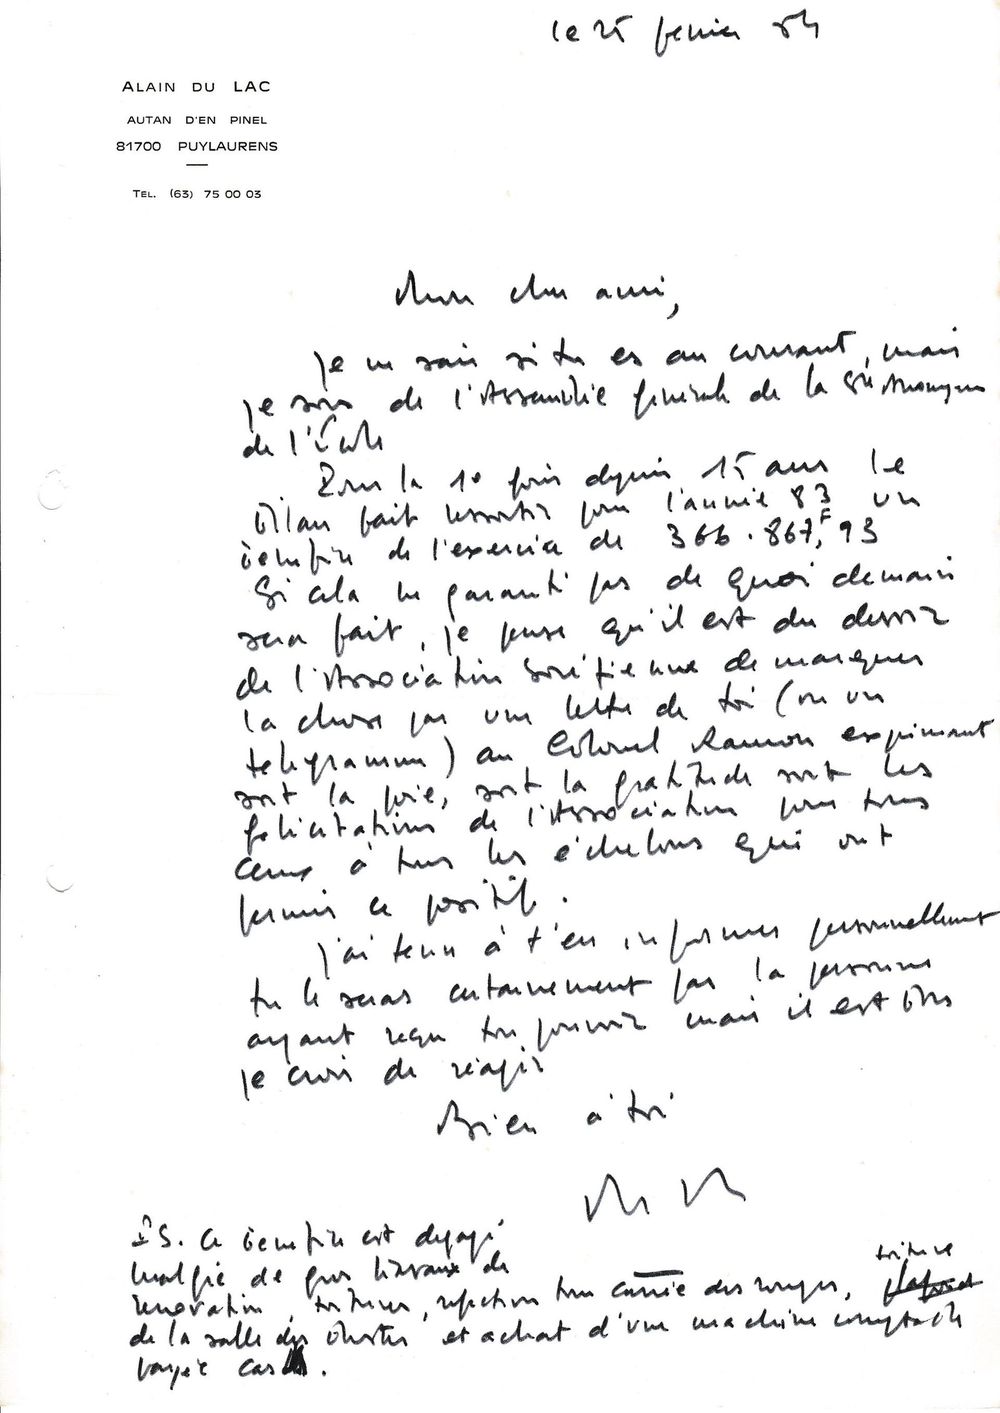 le 25 février 84
ALAIN DU LAC
AUTAN D'EN PINEL
81700 PUYLAURENS
TEL. (63) 75 00 03
Mon cher ami,
Je ne sais si tu es au courant, mais
je sors de l'Assemblée générale de la Sté Anonyme
de l'École
Pour la 1e fois depuis 15 ans le
bilan fait ressortir pour l'année 83 un
bénéfice de l'exercice de 366.867,F93
Si cela ne garanti pas de quoi demain
sera fait, je pense qu'il est du devoir
de l'Association Sorézienne de marquer
la chose par une lettre de toi (ou un
telegramme) au Colonel Ramon exprimant
soit la joie, soit la gratitude soit les
felicitations de l'Association pour tous
ceux à tous les échelons qui ont
permis ce positif.
J'ai tenu à t'en informer personnellement
tu le seras certainement par la personne
ayant reçu ton pouvoir mais il est bon
je crois de réagir
Bien à toi
PS. Ce bénéfice est dégagé
malgré de gros travaux de
renovation, toitures, refection cour carrée des rouges, toiture
de la salle des illustres, et achat d'une machine comptable
payée cash.